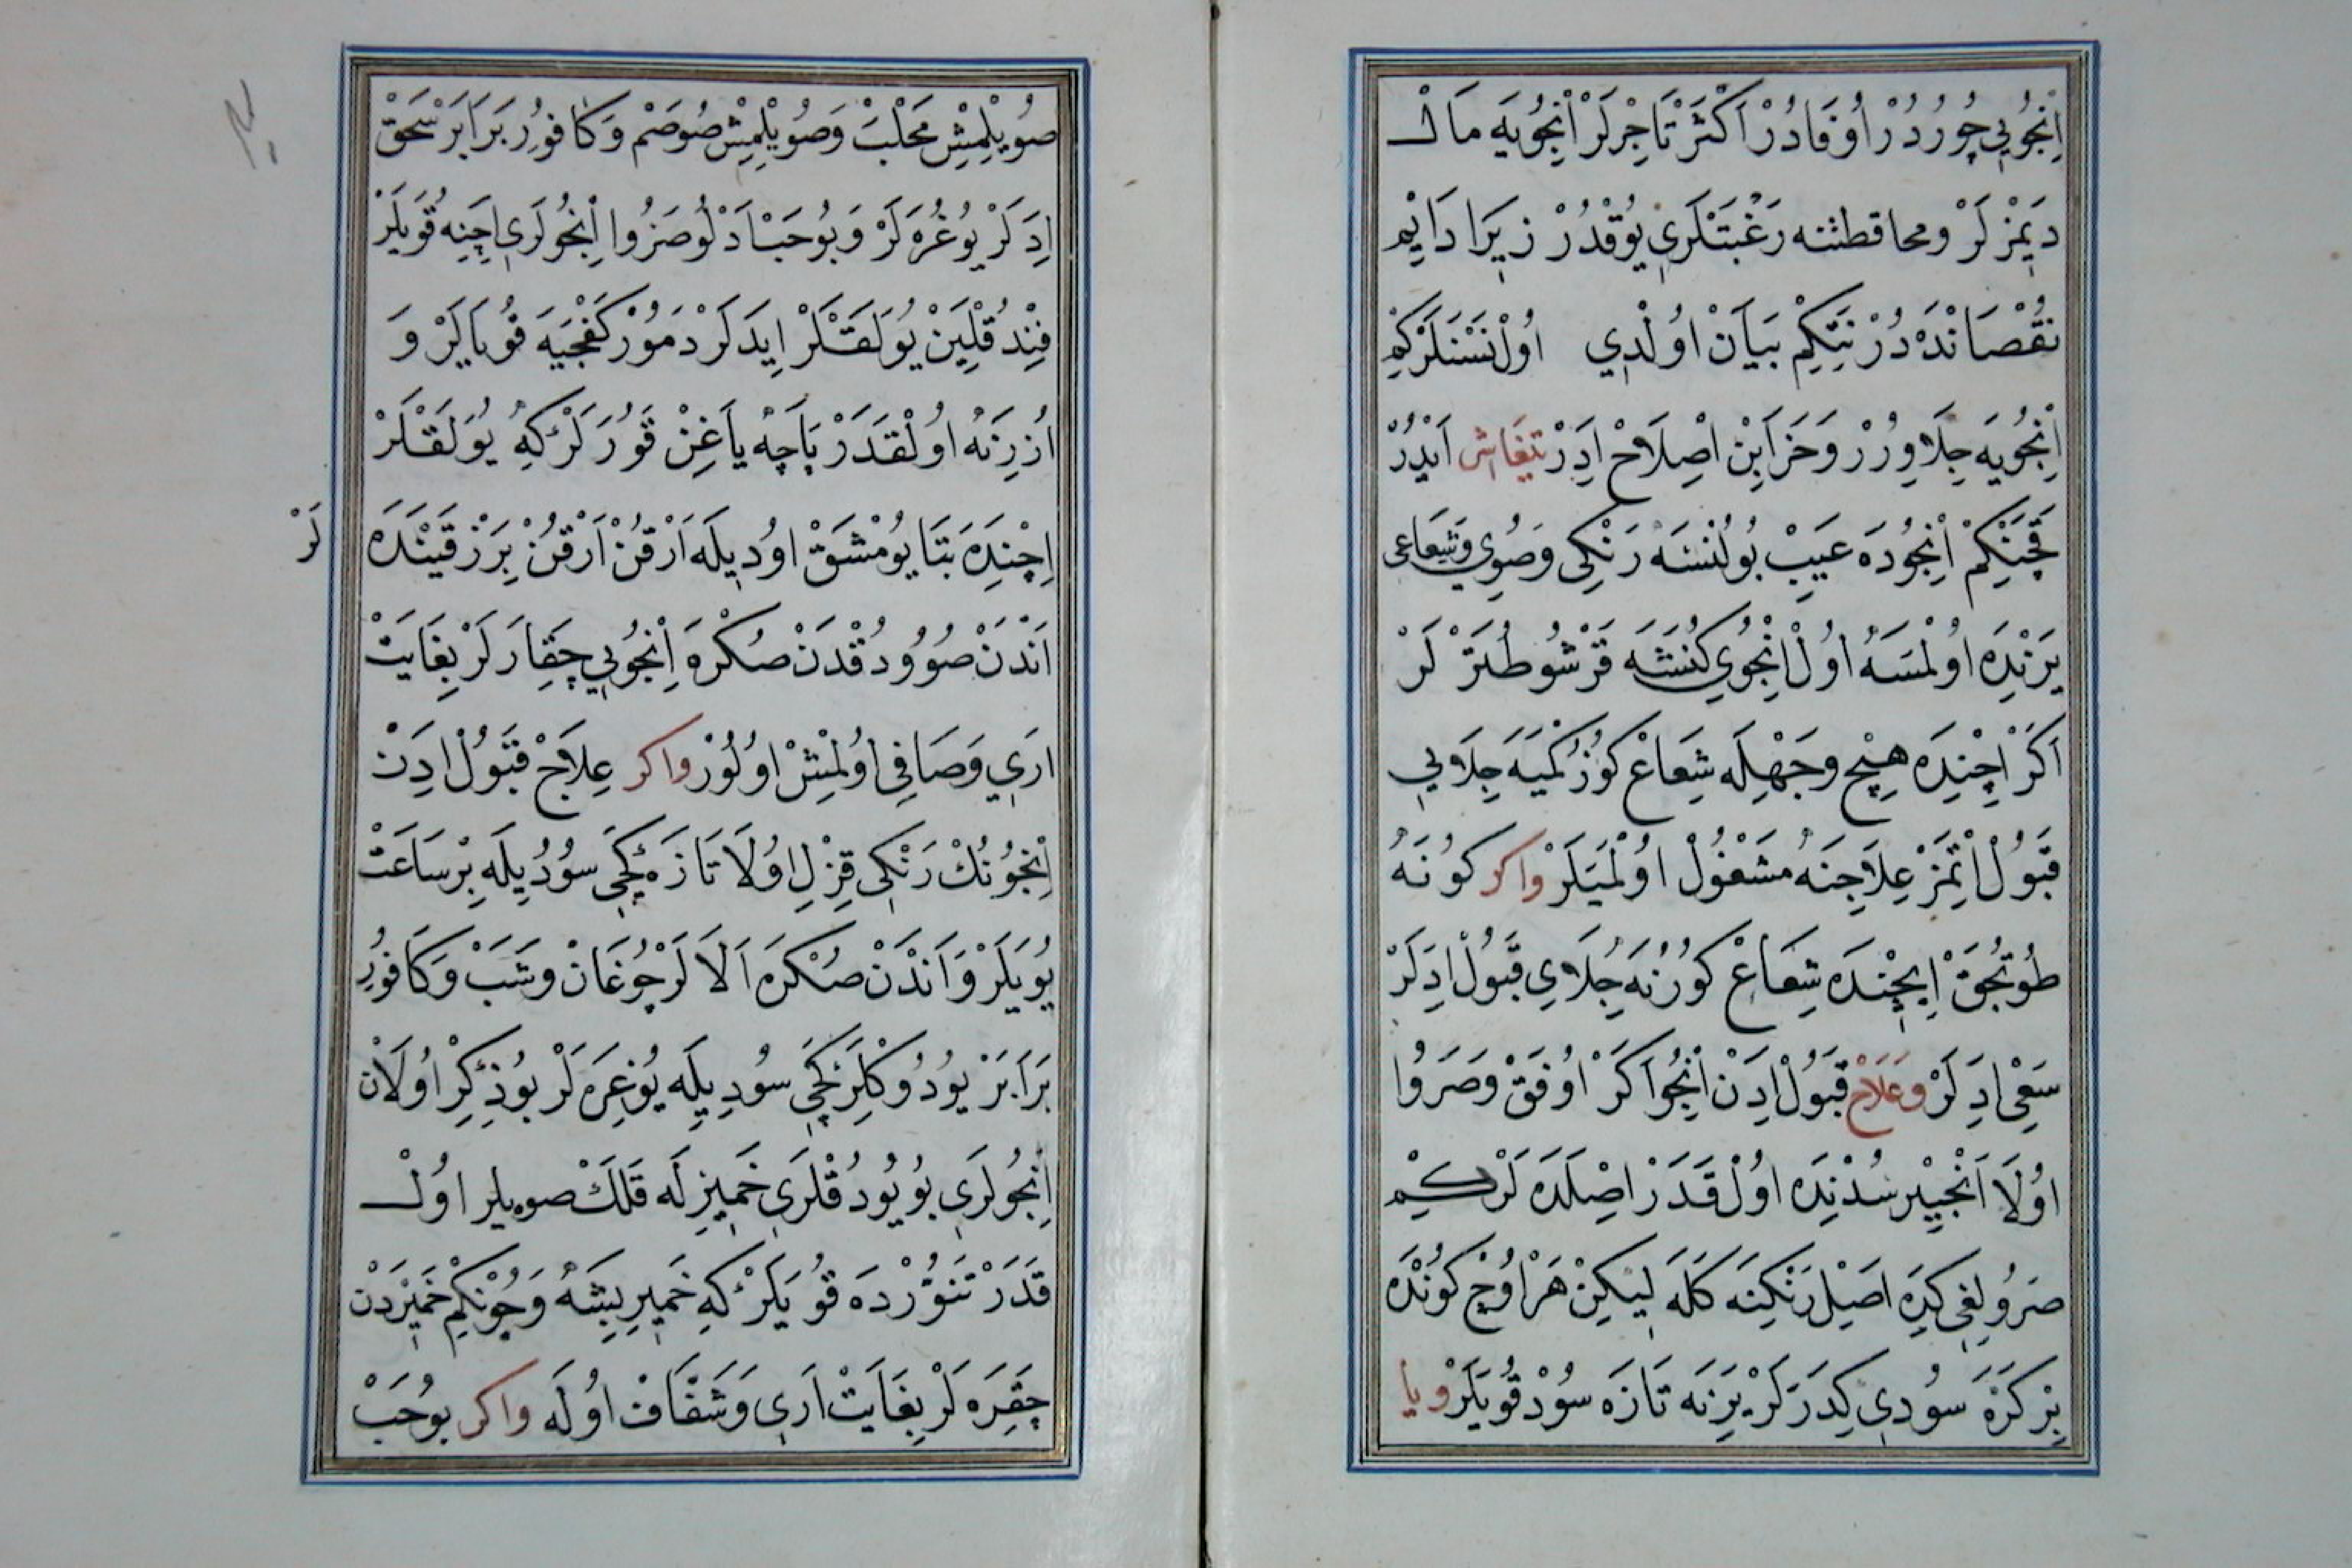 اِنْجُويِي چُورُدُرْ اُوفَادُرْ اَكْثَرْ تَاجِرْلَرْ اِنْجُويَه مَالْ
دَيِمْزلَرْ ومحافطثنه رَغْبَتْلَرِي يُوقْدُرْ زِيَرا دَايِم
نُقْصَانْدَه دُرْ نِتَكِمْ بَيَانْ اوُلْدِي اوُلْ نَسْنَلَرْكِمْ
اِنْجُويَه جِلَا وِرُرْ وَخَرَابِنْ اصِلَاحْ ادِرْ تيفاش ايدُرْ
قَچَنْكِمْ اِنْجُودَه عَيِبْ بُولُنْسَه رَنْكِي وَصُويِ وَشِعَاعِي
يَرِنْدِه اوُلْمَسَهْ اوُلْ اِنْجُويِ كُنَشَه قَرْشُو طُتَرْ لَرْ
اَكَرْ اِچِنْدَه هِيچ وَجْهِلَه شِعَاعْ كوُزكْمَيَه جِلَايِي
قَبُولْ اتْمَزْ عِلَاجِنَه مشَغُولْ اوُلْمَيَلَرْ واكر كوُنَهْ
طُوتُجُقْ اِيچِنْدَه شِعَاعْ كوُرُنَه جُلَايِ قَبُولْ ادِرَلَرْ
سَعْي ادِرلَرْ وعَلَاج قَبُولْ ادِنْ اِنْجُو اَكَرْ اوُفَقْ وصَرَوُا
اوُلَا اَنْجِيِيْر سُدْنِدَه اوُلْ قَدَرْ اصِلَدَه لَرْ كِيمْ
صَرَوُلِغِي كِدَه اصَيِلْ رَنْكِنَه كَلَه لِيكِنْ هَرْ اوُچْ كوُنْدَه
بِرْ كَرَّه سوُدِي كِدَرَرلَرْ يَرِنَه تَازَه سوُدْ قُويَلَرْ ويا
صُويِلْمِشْ مَحْلَبْ وَصُويِلْمِشْ صُوصَمْ وَكَافوُرِ بَرَابَرْ سَحَقْ
اِدَرلَرْ يوُغُرَه لَرْ وَبُو حَبْ اَدْلوُ صَرَوُا اِنْجُولَرِي اِچِنِه قُويَلَرْ
فِنْدُقْلِيَنْ يُوَلَقْلَرْ اِيدَه لَرْ دَمُورْ كَفْجَيَه قُويَالَرْ وَ
اُزرِنَه اوُلْقَدَرْ پَاچَهْ يَاغِنْ قَوُرَلَرْ كِهْ يوُلَقْلَرْ
اِچِنْدِه بَتَا يوُمْشَقْ اوُدِيلَه اَرْقُنْ اَرْقُنْ بِرَزْ قَيْنَدَه
لَرْ
اَنْدَنْ صوُوُدُقْدَنْ صُكْرَه اِنْجُويِي چِقَارَلَرْ بِغَايَتْ
اَرِي وَصَافِي اوُلْمِشْ اوُلُورْ واكر عِلَاجْ قَبُولْ ادِنْ
اِنْجُونُكْ رَنْكِي قِزِلْ اوُلَا تَازَه كَچِي سوُدُيلَه بِرْ سَاعَتْ
يُويَلَرْ وَاَنْدَنْ صُكْرَه اَلَالَرْ چُوغَانْ وشَبْ وَكَافوُرِ
بَرَابَرْ يوُدُوكْلَرْ كَچِي سوُدِيلَه يُوغِرَه لَرْ بُو ذِكْرْ اوُلَانْ
اِنْجُولَرِي بُو يوُدُقْلَرِي خَمِيرِلَه قَلَكْ صوه يلر اوُلْ
قَدَرْ تَنوُّرْدَه قُويَلَرْ كِه خَمِيرِ پِشَهْ وَچُونْكِمْ خَمِيْردَنْ
چِقَرَه لَرْ بِغَايَتْ اَرِي وَشَفَّافْ اوُلَه واكر بوُحَبْ